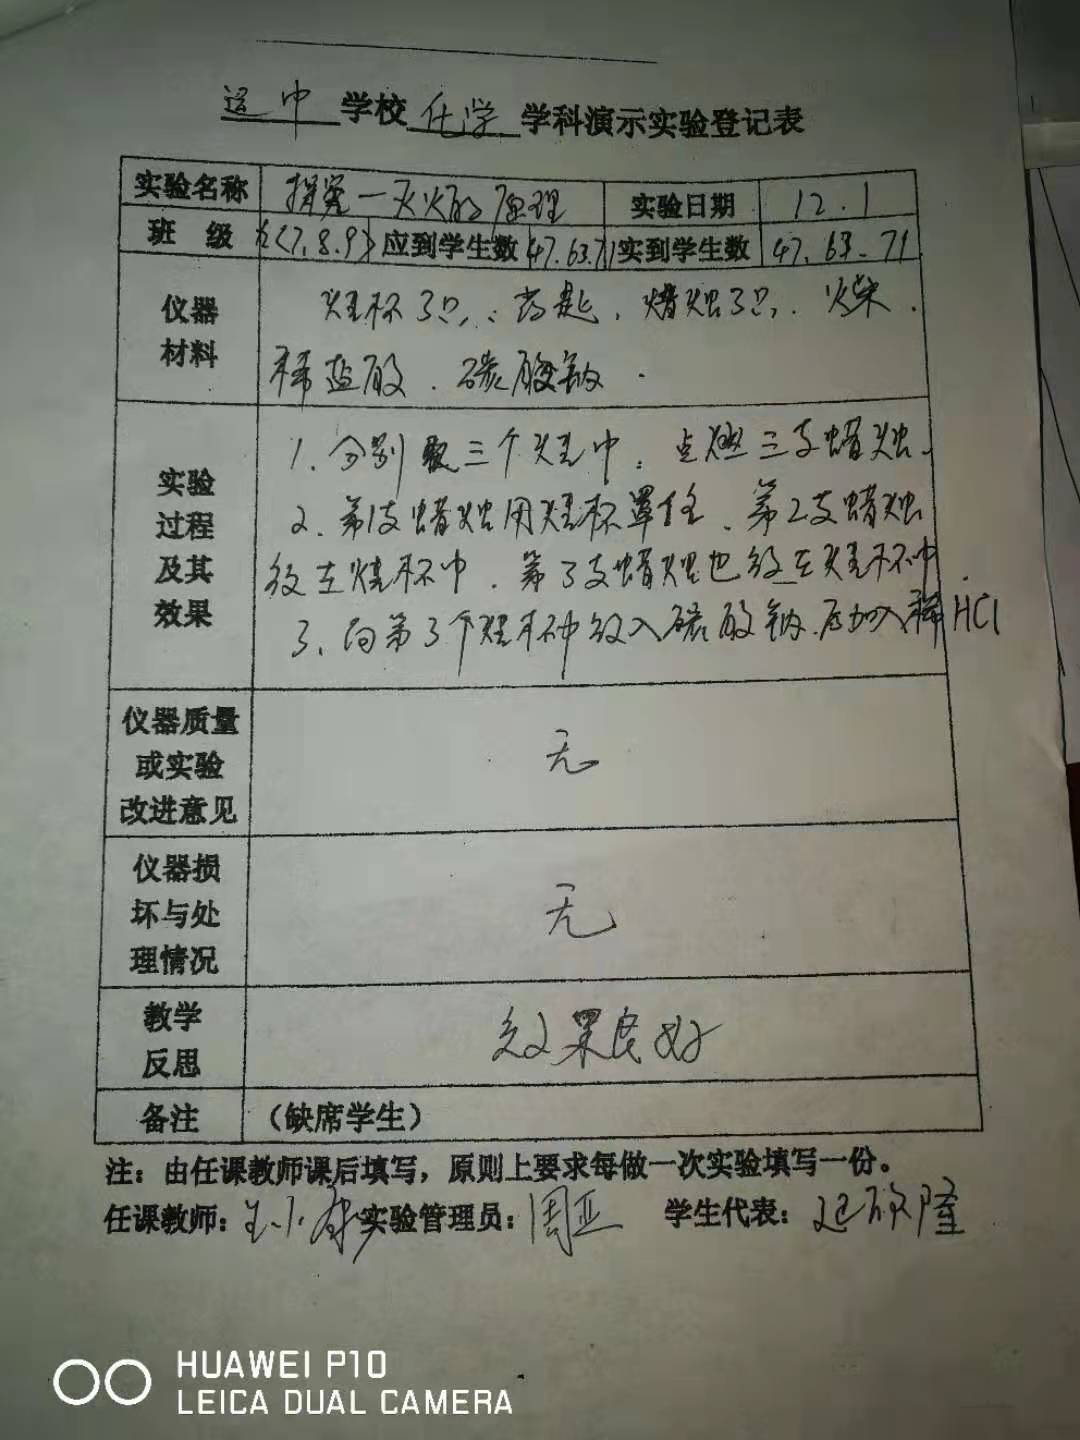 运中学校化学学科演示实验登记表
实验名称 探究一灭火的原理 实验日期 12.1
班 级 (7.8.9) 应到学生数 47.63.71 实到学生数 47.63.71
仪器
材料
烧杯3只、药匙、蜡烛3只、火柴.
稀盐酸.碳酸钠.
实验
过程
及其
效果
1.分别取三个烧中:点燃三支蜡烛.
2.第1支蜡烛用烧杯罩住、第2支蜡烛
放在烧杯中.第3支蜡烛也放在烧杯中.
3.向第3个烧杯中放入碳酸钠.后加入稀HCl
仪器质量
或实验
改进意见
无
仪器损
坏与处
理情况
无
教学
反思
效果良好
备注 (缺席学生)
注：由任课教师课后填写，原则上要求每做一次实验填写一份。
任课教师：王小康 实验管理员：周亚 学生代表：
HUAWEI P10
LEICA DUAL CAMERA